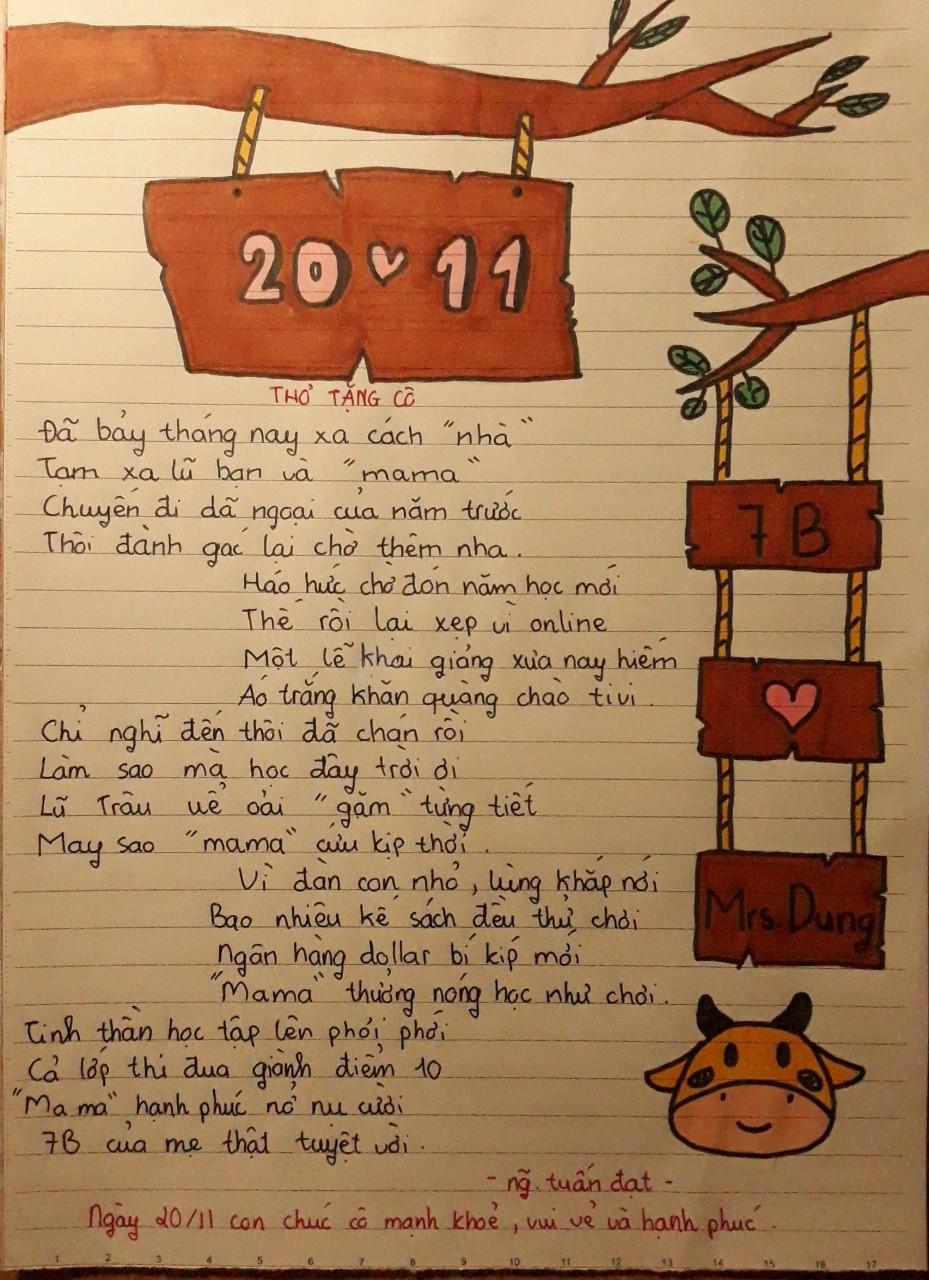 20 11
THƠ TẶNG CÔ
Đã bảy tháng nay xa cách "nhà"
Tạm xa lũ bạn và "mama"
Chuyến đi dã ngoại của năm trước
Thôi đành gác lại chờ thêm nha.
Háo hức chờ đón năm học mới
Thế rồi lại xẹp vì online
Một lễ khai giảng xưa nay hiếm
Áo trắng khăn quàng chào tivi.
Chỉ nghĩ đến thôi đã chán rồi
Làm sao mà học đây trời ơi
Lũ Trâu uể oải "gặm" từng tiết
May sao "mama" cứu kịp thời.
Vì đàn con nhỏ, lùng khắp nơi
Bao nhiêu kế sách đều thử chơi
Ngân hàng dollar bí kíp mới
"Mama" thưởng nóng học như chơi.
Tinh thần học tập lên phơi phới
Cả lớp thi đua giành điểm 10
"Mama" hạnh phúc nở nụ cười
7B của mẹ thật tuyệt vời.
- ng̃. tuấn đạt -
Ngày 20/11 con chúc cô mạnh khoẻ, vui vẻ và hạnh phúc.
7B
Mrs. Dung
1 2 3 4 5 6 7 8 9 10 11 12 13 14 15 16 17